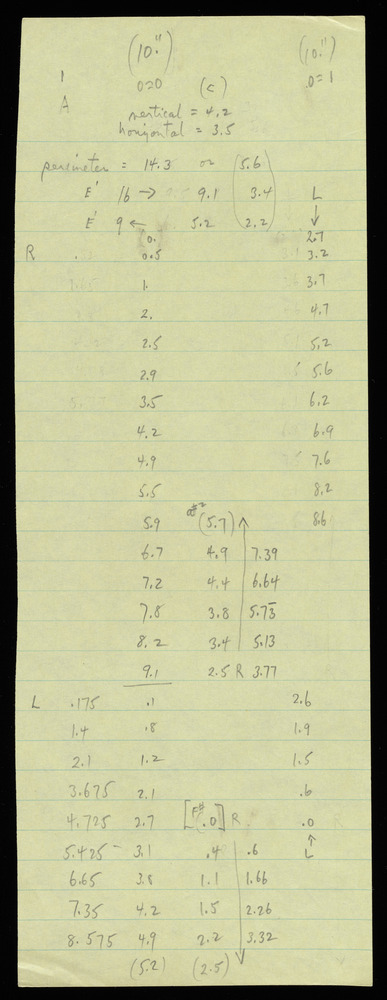 (10.") (10.")
1 0=0 (c) .0=1
A vertical = 4.2
horizontal = 3.5
perimeter = 14.3 or (5.6
E' 16 → 9.1 3.4 L
E' 9 ← 5.2 2.2) ↓
0. 2.7
R 0.5 3.2
1. 3.7
2. 4.7
2.5 5.2
2.9 5.6
3.5 6.2
4.2 6.9
4.9 7.6
5.5 8.2
5.9 (5.7) ↑ 8.6
6.7 4.9 7.39
7.2 4.4 6.64
7.8 3.8 5.73
8.2 3.4 5.13
9.1 2.5 R 3.77
L .175 .1 2.6
1.4 .8 1.9
2.1 1.2 1.5
3.675 2.1 .6
4.725 2.7 [F# .0] R .0
5.425 - 3.1 .4 .6 ↑ L
6.65 3.8 1.1 1.66
7.35 4.2 1.5 2.26
8.575 4.9 2.2 3.32
(5.2) (2.5) ↓